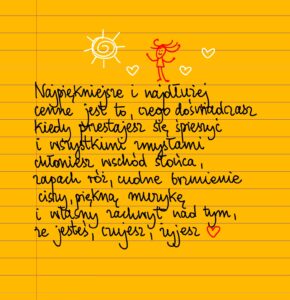 Najpiękniejsze i najdłużej
cenne jest to, czego doświadczasz
kiedy przestajesz się śpieszyć
i wszystkimi zmysłami
chłoniesz wschód słońca,
zapach róż, cudne brzmienie
ciszy, piękną muzykę
i własny zachwyt nad tym,
że jesteś, czujesz, żyjesz